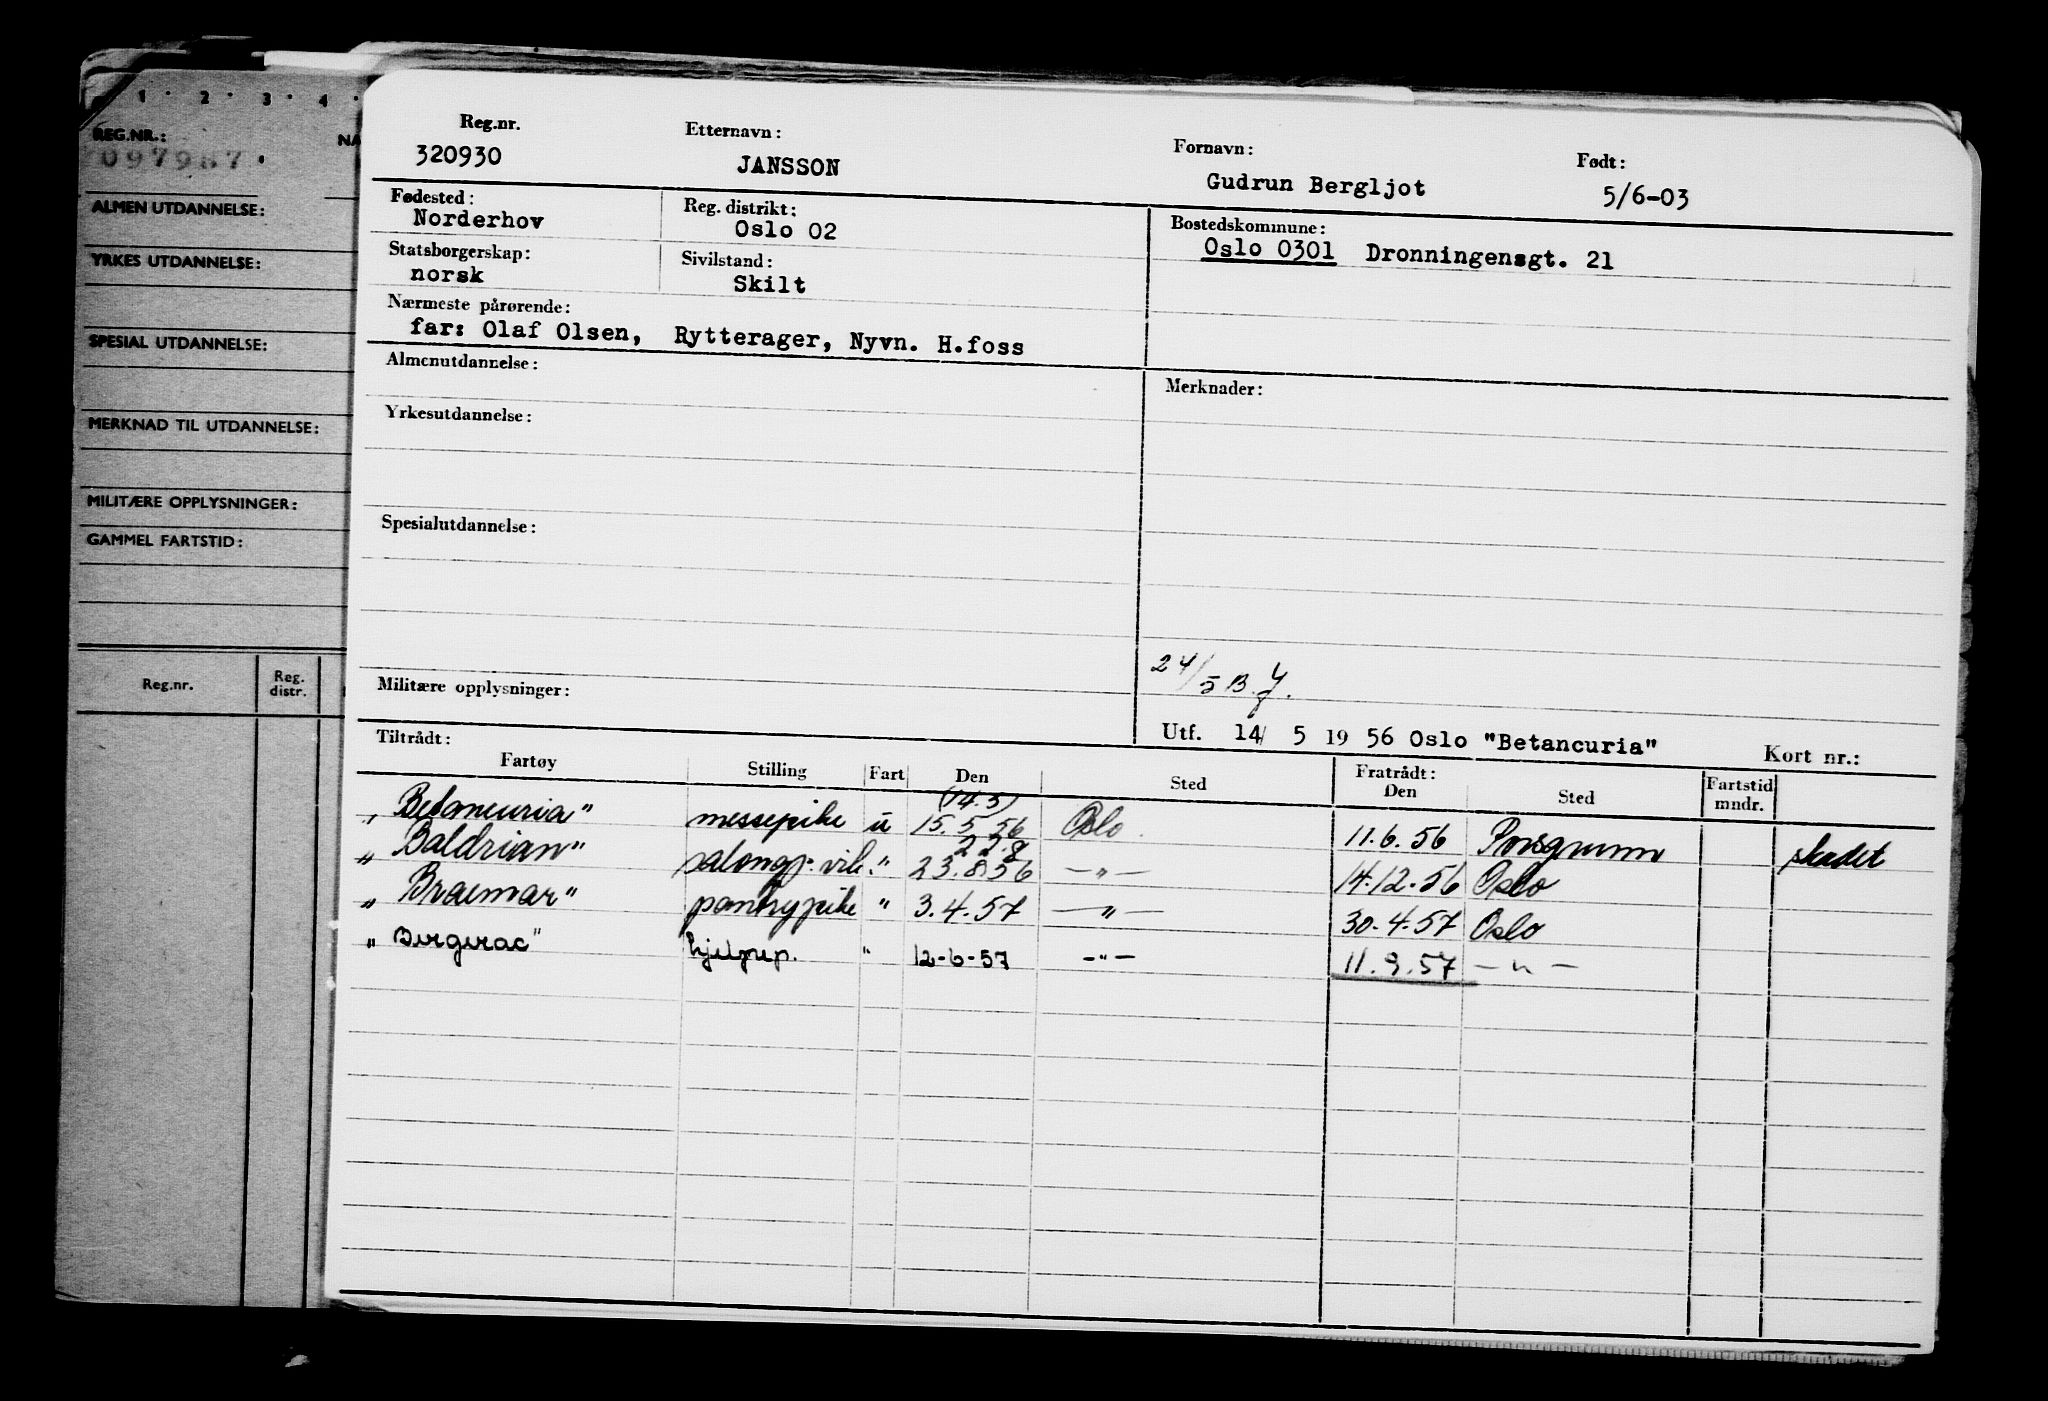 1 · 2 · 3 · 4 ·
REG.NR.: NA
097987.
ALMEN UTDANNELSE:
YRKES UTDANNELSE:
SPESIAL UTDANNELSE:
MERKNAD TIL UTDANNELSE:
MILITÆRE OPPLYSNINGER:
GAMMEL FARTSTID:
Reg.nr. Reg. distr.
Reg.nr. Etternavn: Fornavn: Født:
320930 JANSSON Gudrun Bergljot 5/6-03
Fødested: Reg. distrikt: Bostedskommune:
Norderhov Oslo 02 Oslo 0301 Dronningensgt. 21
Statsborgerskap: Sivilstand:
norsk Skilt
Nærmeste pårørende:
far: Olaf Olsen, Rytterager, Nyvn. H.foss
Almenutdannelse: Merknader:
Yrkesutdannelse:
Spesialutdannelse:
24/5 B.J.
Militære opplysninger:
Utf. 14/ 5 19 56 Oslo "Betancuria"
Tiltrådt: Kort nr.:
Fartøy Stilling Fart Den Sted Fratrådt: Den Sted Fartstid mndr.
(14.5)
"Betancuria" messepike u 15.5.56 Oslo. 11.6.56 Porsgrunn skadet
22.8
"Baldrian" salongp. vik. " 23.8.56 —"— 14.12.56 Oslo
"Braemar" pantrypike " 3.4.57 —"— 30.4.57 Oslo
"Bergerac" hjelpep. " 12-6-57 -"- 11.9.57 —"—